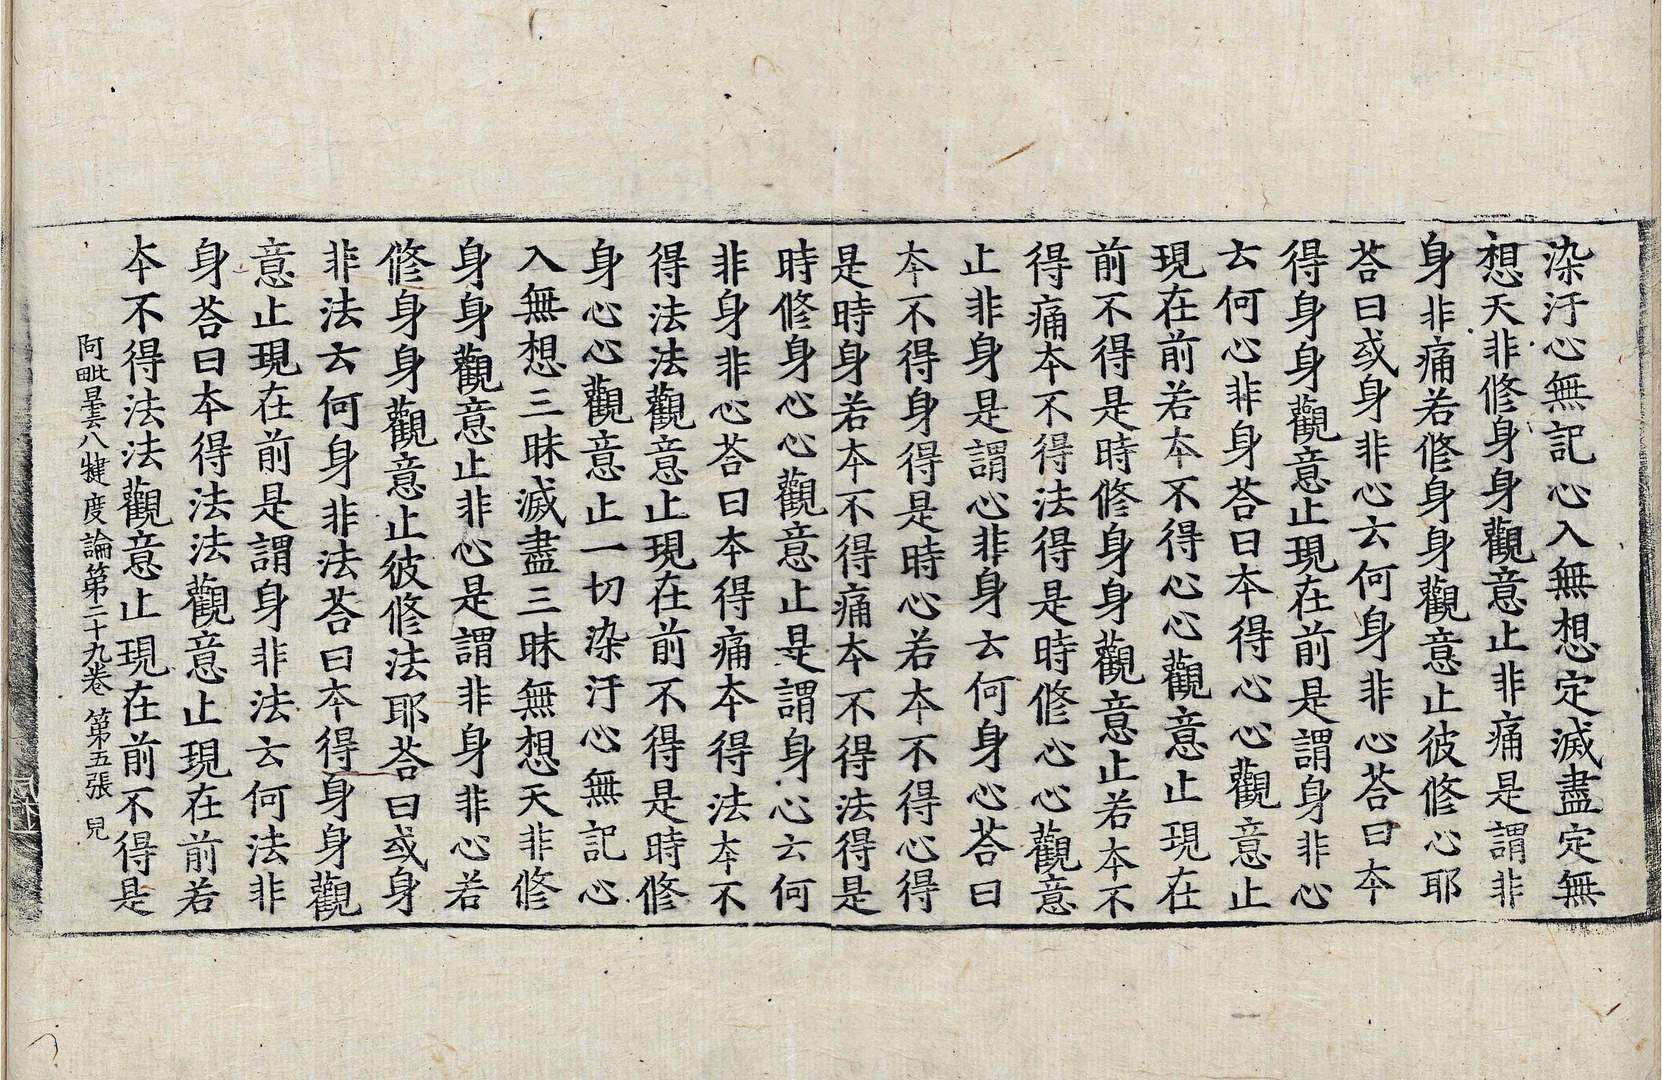 染汙心無記心入無想定滅盡定無
想天非修身身觀意止非痛是謂非
身非痛若修身身觀意止彼修心耶
荅曰或身非心云何身非心荅曰本
得身身觀意止現在前是謂身非心
云何心非身荅曰本得心心觀意止
現在前若本不得心心觀意止現在
前不得是時修身身觀意止若本不
得痛本不得法得是時修心心觀意
止非身是謂心非身云何身心荅曰
本不得身得是時心若本不得心得
是時身若本不得痛本不得法得是
時修身心心觀意止是謂身心云何
非身非心荅曰本得痛本得法本不
得法法觀意止現在前不得是時修
身心心觀意止一切染汙心無記心
入無想三昧滅盡三昧無想天非修
身身觀意止非心是謂非身非心若
修身身觀意止彼修法耶荅曰或身
非法云何身非法荅曰本得身身觀
意止現在前是謂身非法云何法非
身荅曰本得法法觀意止現在前若
本不得法法觀意止現在前不得是
阿毗曇八犍度論第二十九卷 第五張 兒